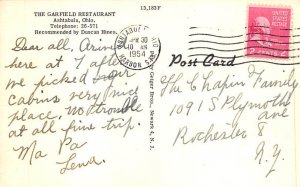 13,183F
THE GARFIELD RESTAURANT
Ashtabula, Ohio.
Telephone: 26-571
Recommended by Duncan Hines.
Dear all, Arrived
here at 7 after
we picked our
cabins very nice
place, No trouble
at all fine trip.
Ma Pa
Lena.
APR 30
10 AM
1954
UNITED STATES POSTAGE
Post Card
The Chapin Family
1091 S Plymouth
ave
Rochester 8
N.Y.
Newark 4, N. J.